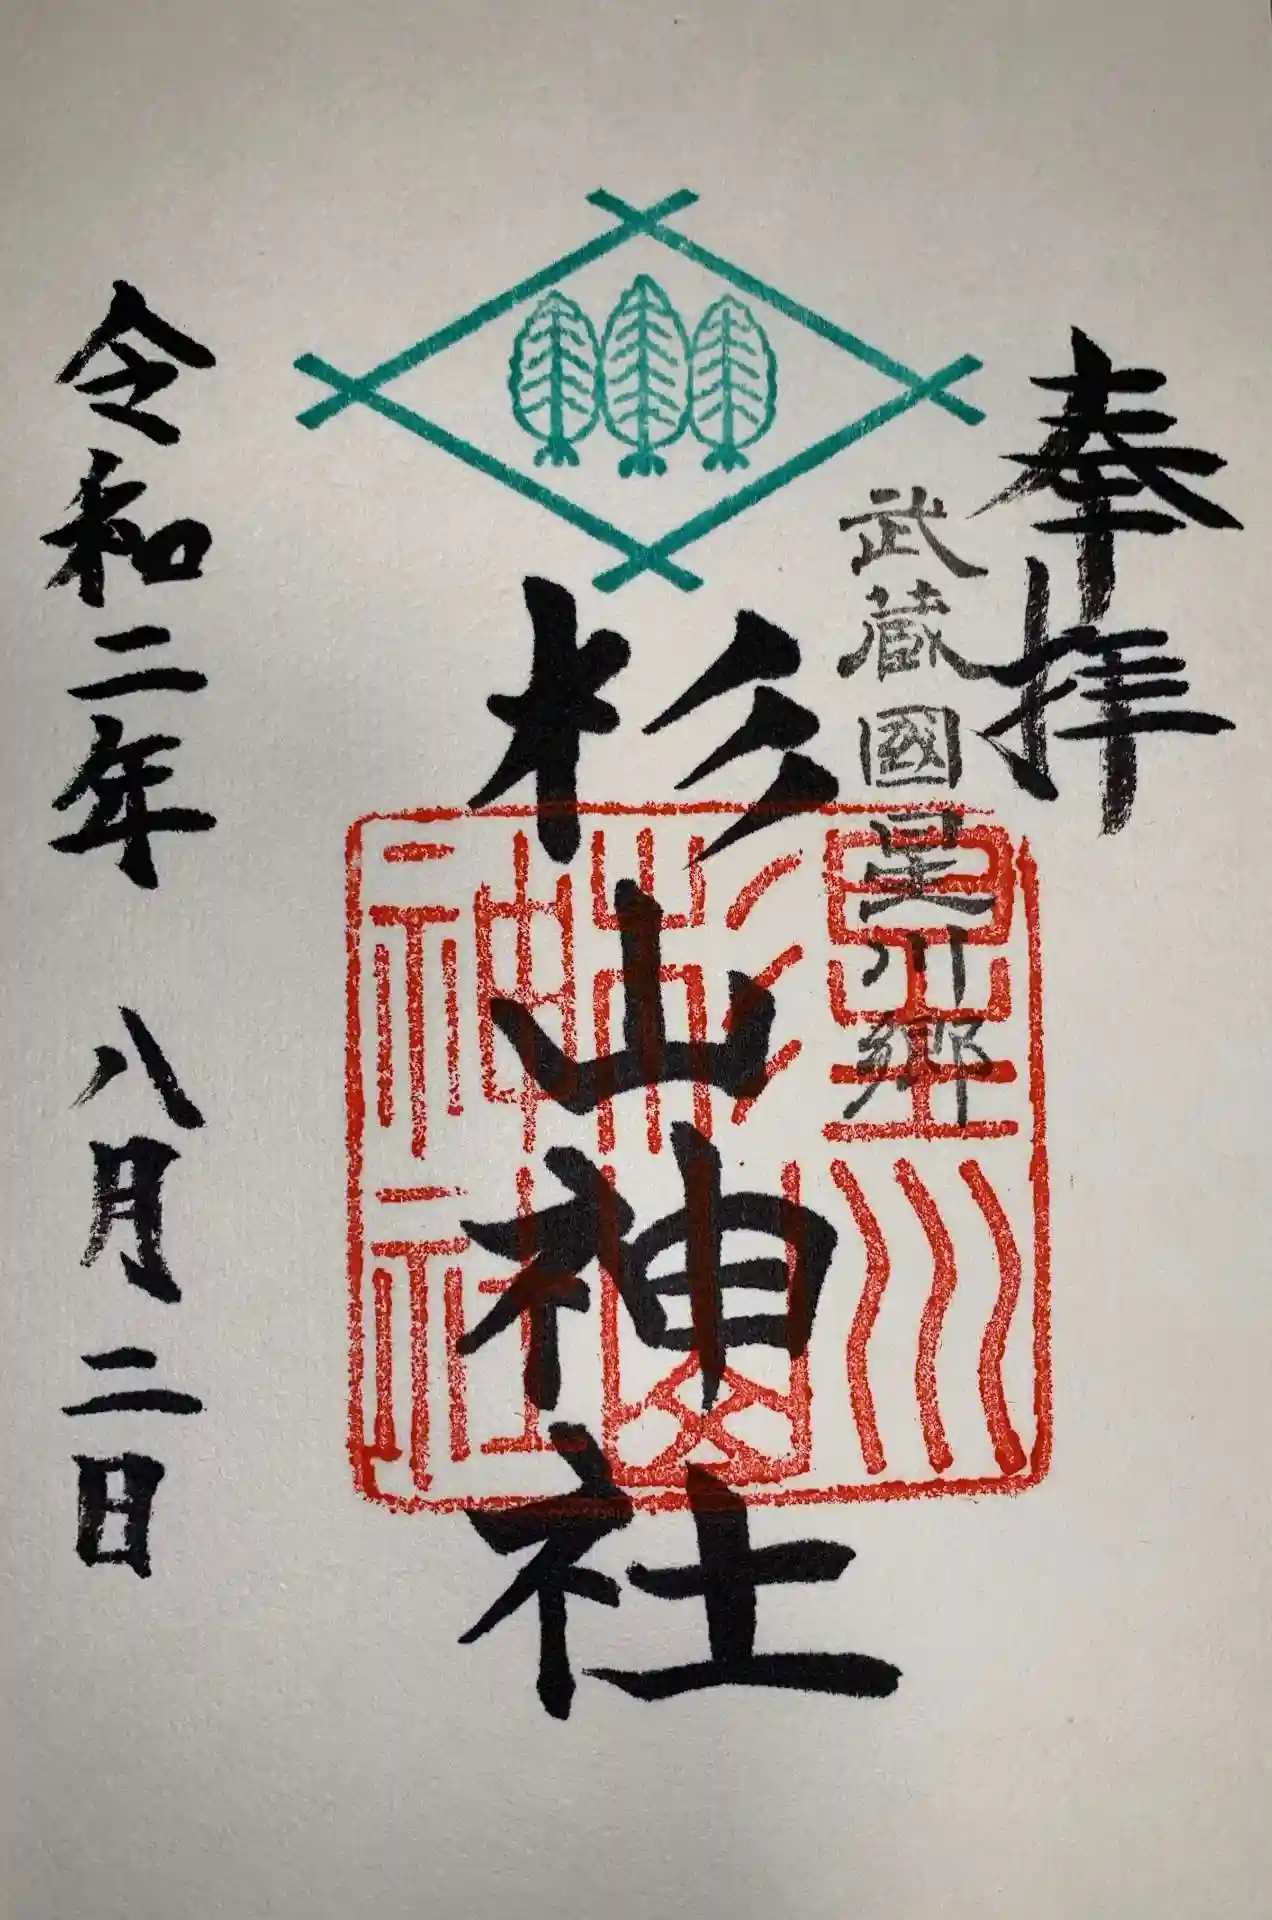 奉拝
武蔵國星川郷
杉山神社
星川
杉山
神社
令和二年 八月二日